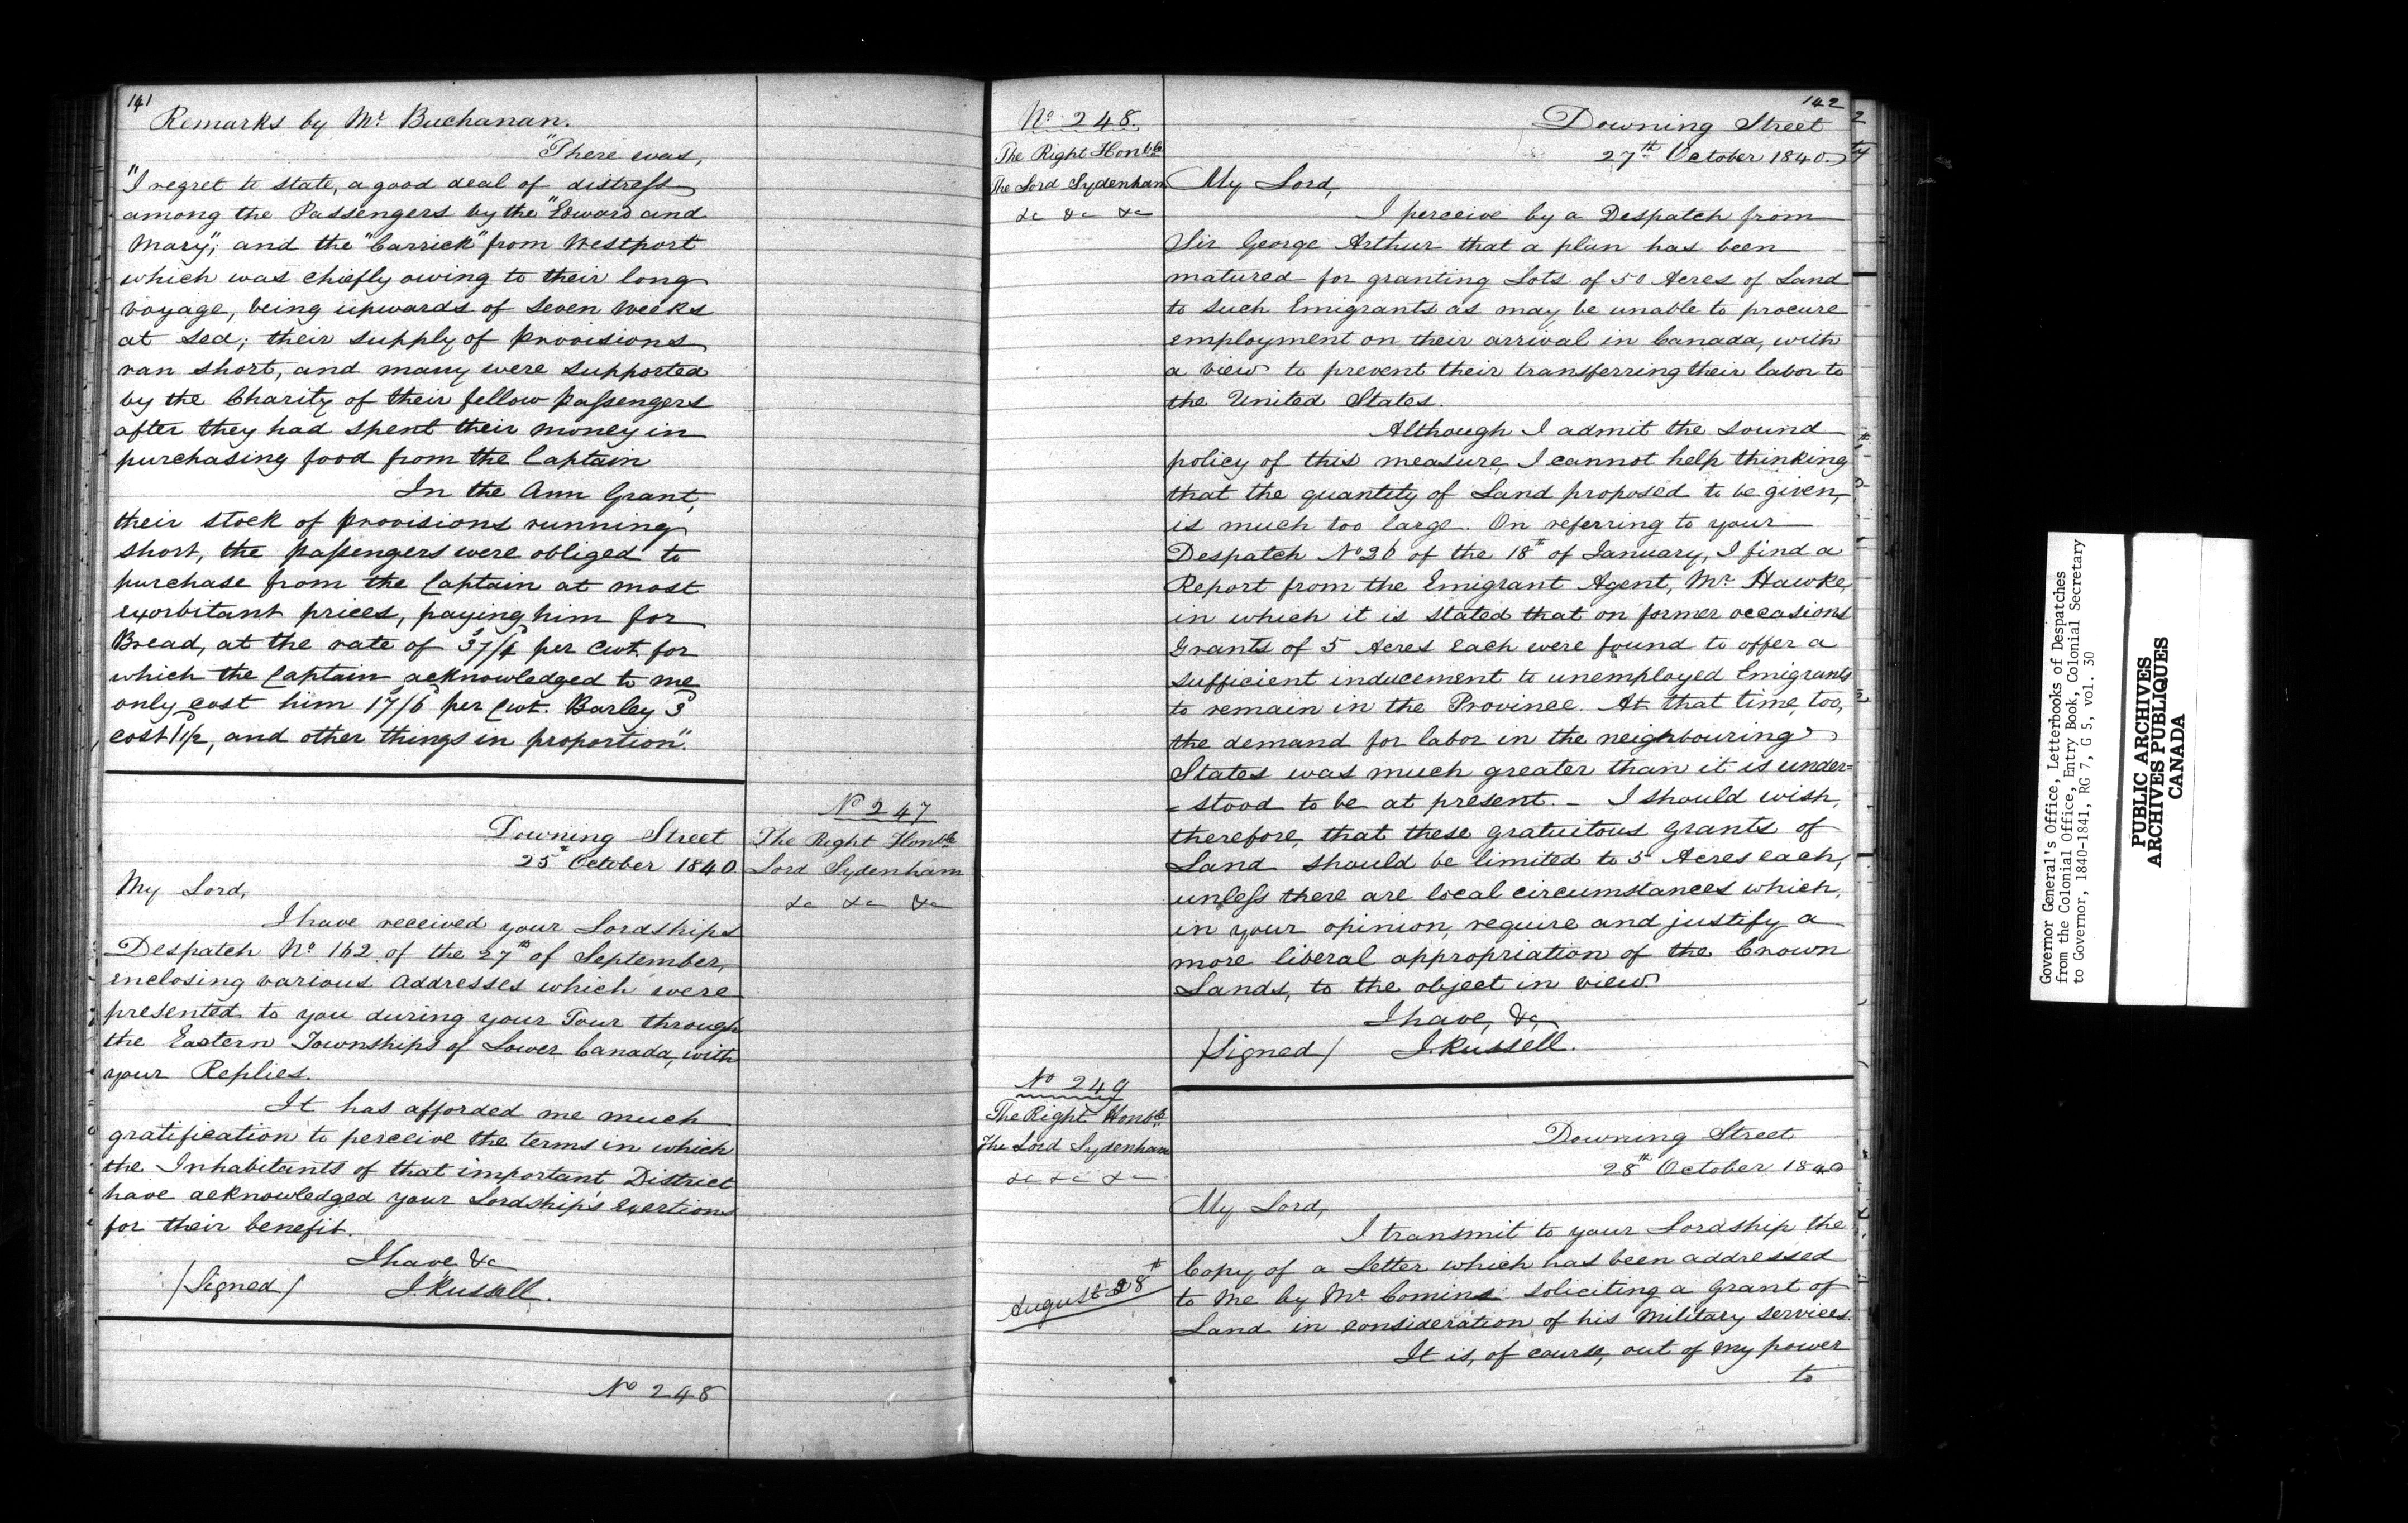 141
Remarks by Mr Buchanan.
"There was,
"I regret to state, a good deal of distress
among the Passengers by the "Edward and
Mary", and the "Carrick" from Westport
which was chiefly owing to their long
voyage, being upwards of seven weeks
at sea; their supply of provisions
ran short, and many were supported
by the Charity of their fellow passengers
after they had spent their money in
purchasing food from the Captain
In the Ann Grant,
their stock of provisions running
short, the passengers were obliged to
purchase from the Captain at most
exorbitant prices, paying him for
Bread, at the rate of 37/6 per Cwt. for
which the Captain acknowledged to me
only cost him 17/6 per Cwt. Barley 3d
cost 1½, and other things in proportion".
No 247
The Right Honble
Lord Sydenham
&c &c &c
Downing Street
25th October 1840
My Lord,
I have received your Lordships
Despatch No. 162 of the 27th of September,
enclosing various addresses which were
presented to you during your Tour through
the Eastern Townships of Lower Canada, with
your Replies.
It has afforded me much
gratification to perceive the terms in which
the Inhabitants of that important District
have acknowledged your Lordship's exertions
for their benefit.
I have &c
/Signed/ J. Russell.
No 248
142
No. 248.
The Right Honble
The Lord Sydenham
&c &c &c
Downing Street
27th October 1840.
My Lord,
I perceive by a Despatch from
Sir George Arthur that a plan has been
matured for granting Lots of 50 Acres of Land
to such Emigrants as may be unable to procure
employment on their arrival in Canada, with
a view to prevent their transferring their labor to
the United States.
Although I admit the sound
policy of this measure, I cannot help thinking
that the quantity of Land proposed to be given,
is much too large. On referring to your
Despatch No 26 of the 18th of January, I find a
Report from the Emigrant Agent, Mr Hawke,
in which it is stated that on former occasions
Grants of 5 Acres each were found to offer a
sufficient inducement to unemployed Emigrants
to remain in the Province. At that time, too,
the demand for labor in the neighbouring
States was much greater than it is under=
-stood to be at present. - I should wish,
therefore, that these gratuitous grants of
Land should be limited to 5 Acres each,
unless there are local circumstances which,
in your opinion, require and justify a
more liberal appropriation of the Crown
Lands, to the object in view.
I have, &c,
/Signed/ J. Russell.
No 249
The Right Honble
The Lord Sydenham
&c &c &c
Downing Street
28th October 1840
My Lord,
I transmit to your Lordship the
August 28th
Copy of a Letter which has been addressed
to me by Mr Comins soliciting a grant of
Land in consideration of his Military services.
It is, of course, out of my power
to
Governor General's Office, Letterbooks of Despatches
from the Colonial Office, Entry Book, Colonial Secretary
to Governor, 1840-1841, RG 7, G 5, vol. 30
PUBLIC ARCHIVES
ARCHIVES PUBLIQUES
CANADA